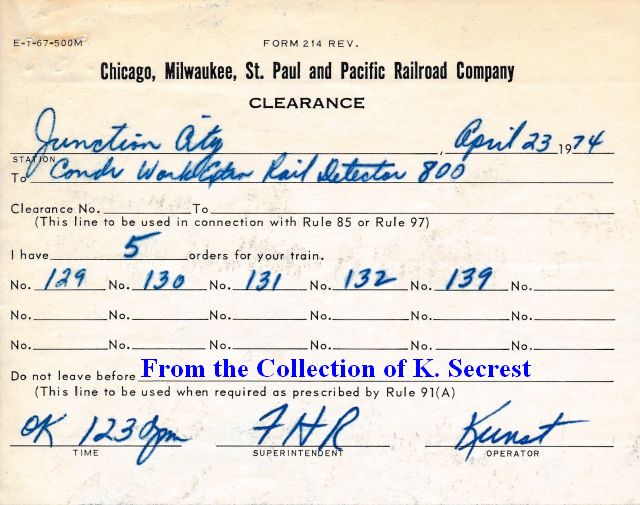 E-1-67-500M FORM 214 REV.
Chicago, Milwaukee, St. Paul and Pacific Railroad Company
CLEARANCE
Junction City, April 23 1974
STATION
To Condr Work Extra Rail Detector 800
Clearance No. To
(This line to be used in connection with Rule 85 or Rule 97)
I have 5 orders for your train.
No. 129 No. 130 No. 131 No. 132 No. 139 No.
No. No. No. No. No. No.
No. No. No. No. No. No.
From the Collection of K. Secrest
Do not leave before
(This line to be used when required as prescribed by Rule 91(A)
OK 1230pm FHR Kunst
TIME SUPERINTENDENT OPERATOR